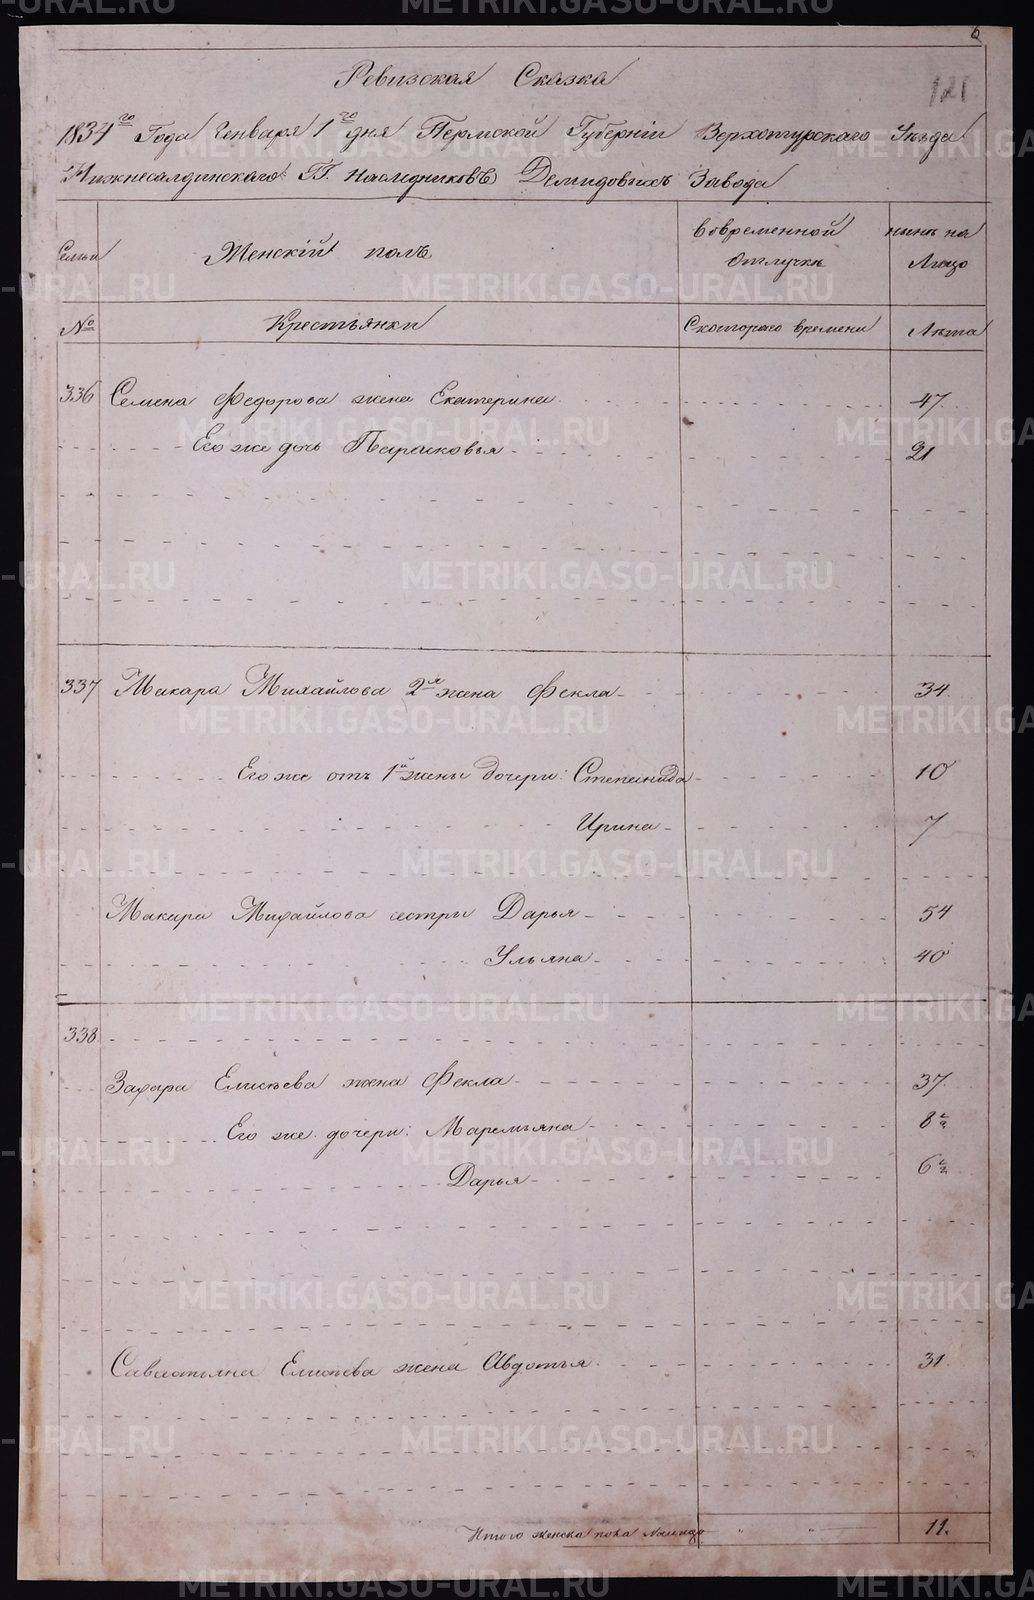 6
121
Ревизская Сказка
1834го Года Генваря 1го дня Пермской Губерніи Верхотурскаго Уѣзда
Нижнесалдинскаго Г.Г. Наслѣдниковъ Демидовыхъ Завода
Семьи
Женскій полъ
Вовременной отлучкѣ
нынѣ на Лицо
№
Крестьянки
Скотораго времени
Лѣта
336 Семена Федорова жена Екатерина 47.
Его же дочь Парасковья 21
337 Макара Михайлова 2я жена Фекла 34.
Его же отъ 1й жены дочери: Степанида 10
Ирина 7
Макара Михайлова сестры Дарья 54
Ульяна 40
338
Захара Елисѣева жена Фекла 37.
Его же дочери: Маремьяна 8
Дарья 6
Савастьяна Елисѣева жена Авдотья 31.
Итого женска пола Налицо " " 11.
METRIKI.GASO-URAL.RU